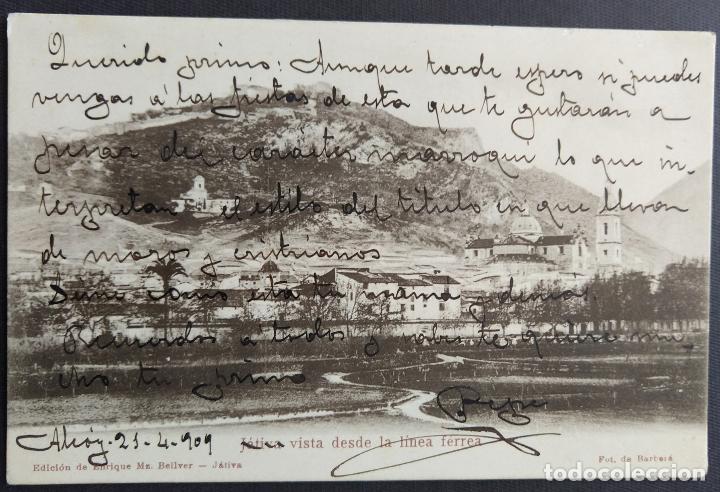 Querido primo: Aunque tarde espero si puedes
vengas á las fiestas de esta que te gustarán a
pesar del carácter marroqui lo que in-
terpretan el estilo del título en que llevan
de moros y cristianos
Dime como está tu mama y demas.
Recuerdos á todos y sabes te quiere mu-
cho tu primo
Pepe
Alcoy-21-4-909
Játiva vista desde la línea férrea
Edición de Enrique Mz. Bellver — Játiva
Fot. de Barberá
todocoleccion